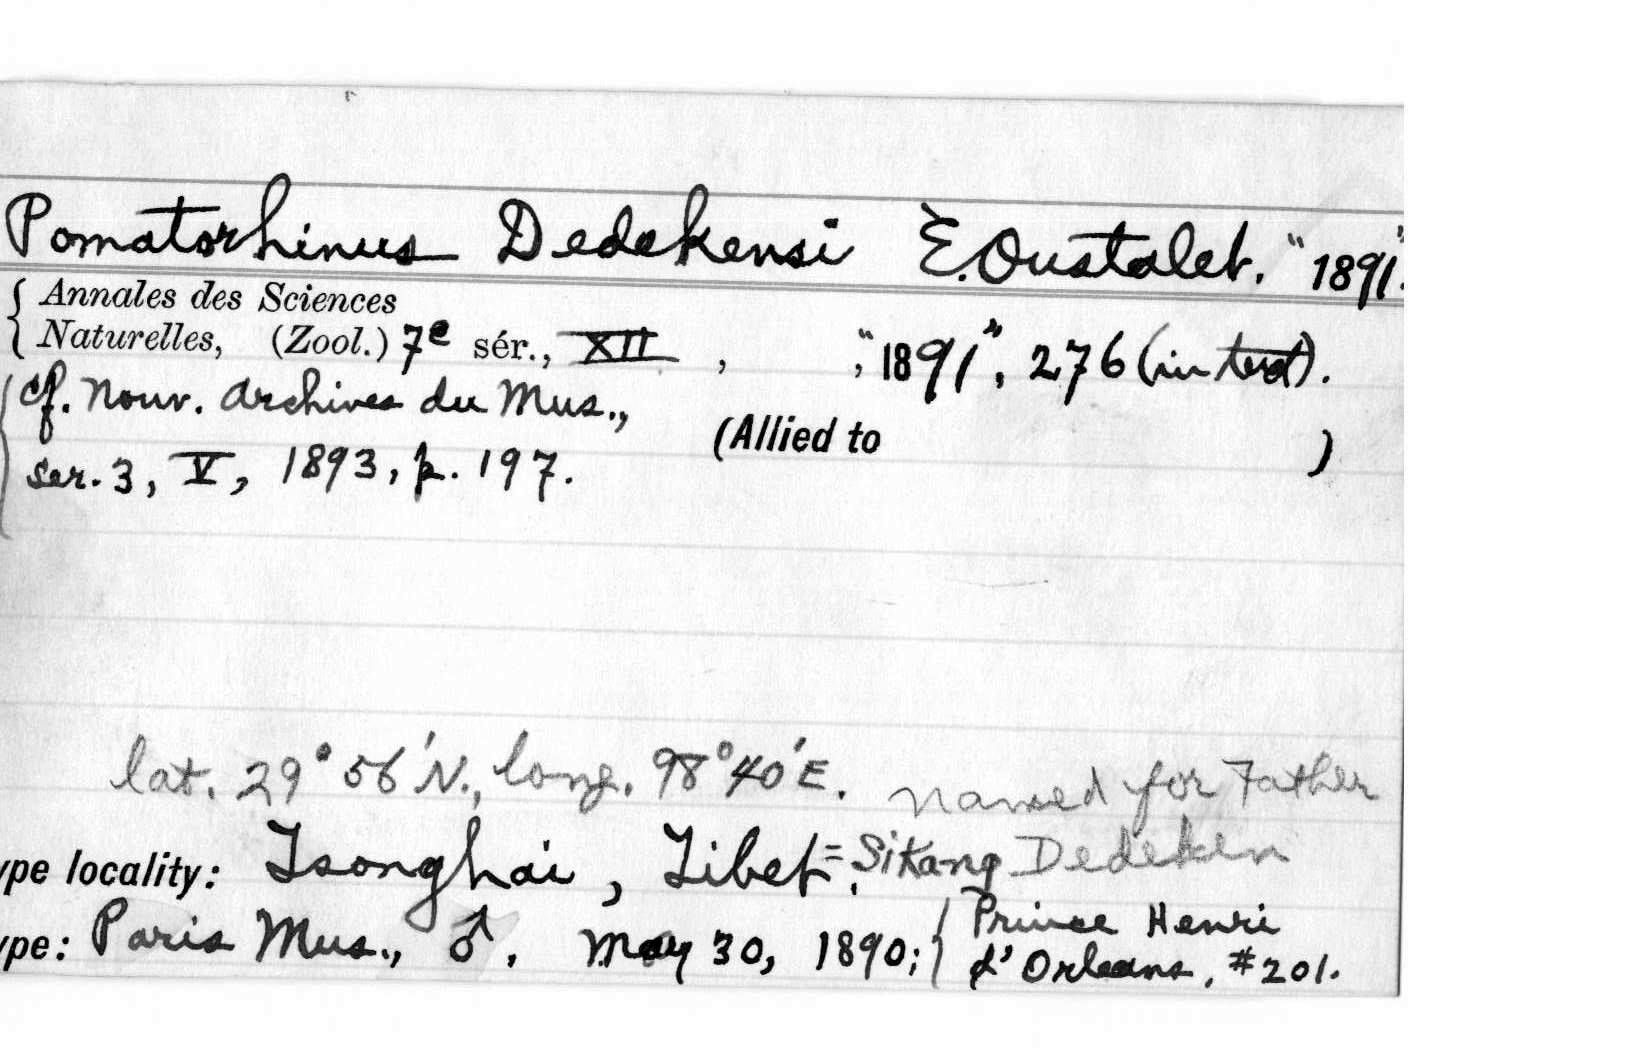 Pomatorhinus Dedekensi É. Oustalet. "1891".
Annales des Sciences
Naturelles, (Zool.) 7e sér., XII , ; "1891", 276 (in text).
cf. Nouv. Archives du Mus.,
(Allied to )
ser. 3, V, 1893, p. 197.
lat. 29°56'N., long. 98°40'E. named for Father
ype locality: Tsonghai, Tibet = Sikang. Dedeken
ype: Paris Mus., ♂. May 30, 1890; Prince Henri
d'Orleans, #201.